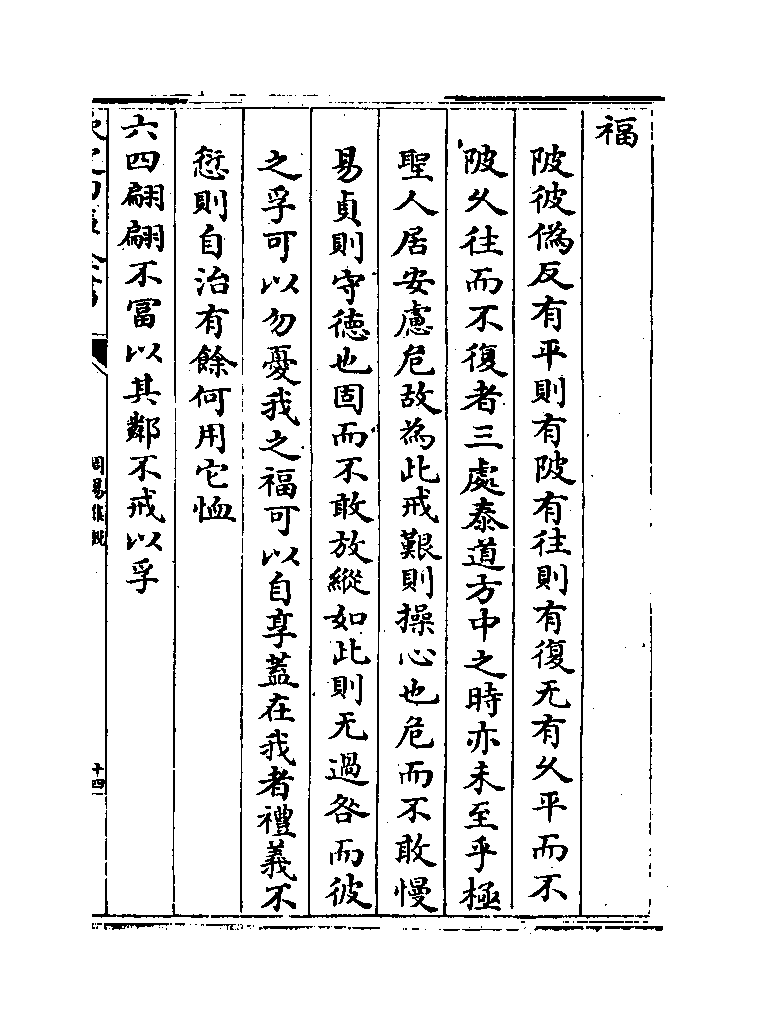 福
陂彼偽反有平則有陂有往則有復无有乆平而不
陂乆往而不復者三處泰道方中之時亦未至乎極
聖人居安慮危故為此戒艱則操心也危而不敢慢
易貞則守徳也固而不敢放縱如此則无過咎而彼
之孚可以勿憂我之福可以自享蓋在我者禮義不
愆則自治有餘何用它恤
六四翩翩不冨以其鄰不戒以孚
周易
十四